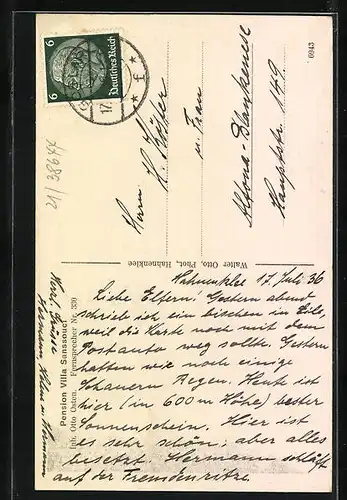 Hahnenklee 17. Juli 36
Liebe Eltern! Gestern abend
schrieb ich ein bischen in Eile,
weil die Karte noch mit dem
Postauto weg sollte. Gestern
hatten wir noch einige
Schauern Regen. Heute ist
hier (in 600 m Höhe) bester
Sonnenschein. Hier ist
es sehr schön; aber alles
besetzt. Hermann schläft
auf der Fremdenritze.
Herzl. Grüße
Hermann
Pension Villa Sanssouci
Inh. Otto Osten, Fernsprecher Nr. 330
Walter Otto, Phot., Hahnenklee
Herrn H. Köster
u. Frau
Altona-Blankenese
Hauptstr. 149
6943
6
Deutsches Reich
6
17.
f